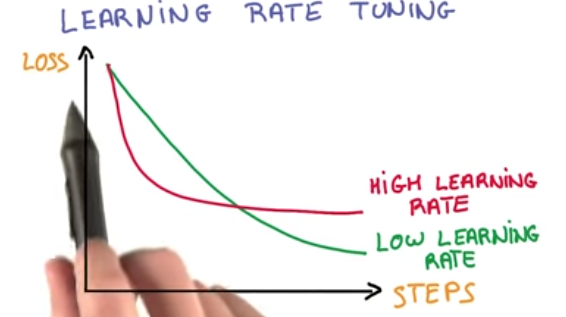 LEARNING RATE TUNING
LOSS
HIGH LEARNING
RATE
LOW LEARNING
RATE
STEPS